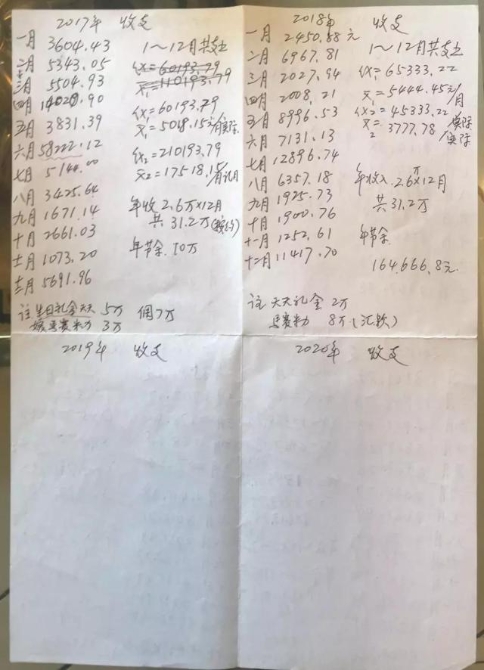 2017年 收支
一月 3604.43
二月 5343.05
三月 5504.93
四月 14020.90
五月 3831.39
六月 58222.12
七月 5144.00
八月 3425.64
九月 1671.14
十月 2661.03
十一月 1073.20
十二月 5691.96
1～12月共支出
60193.79
110193.79
60193.79
=210193.79
年收 2.6万×12月
共 31.2万
年节余 10万
注 生日礼金 5万
3万
2018年 收支
一月 2450.88元
二月 6967.81
三月 2027.94
四月 2008.21
五月 8996.53
六月 7131.13
七月 12896.74
八月 6357.18
九月 1925.73
十月 1900.76
十一月 1252.61
十二月 11417.70
1～12月共支出
=65333.22
=5444.452/月
=45333.22
=3777.78/
年收入 2.6万×12月
共 31.2万
年节余
164.666.8元
注 天天礼金 2万
8万
2019年 收支
2020年 收支